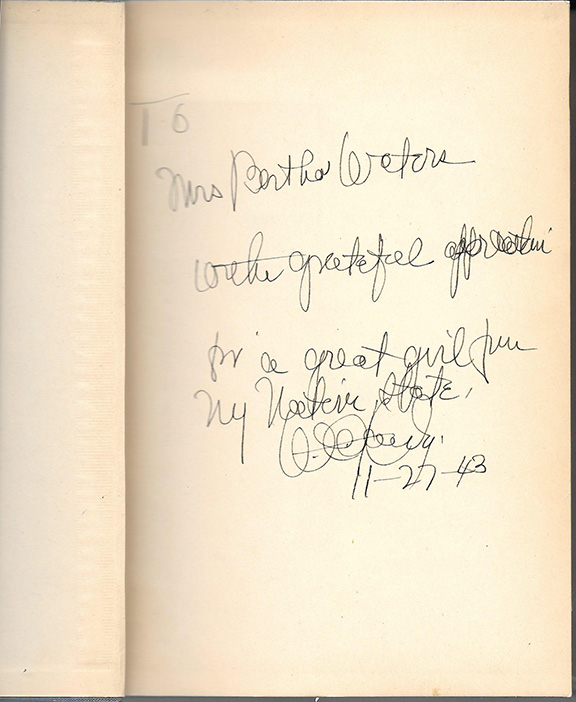 To
Mrs Bertha Waters
with grateful appreciation
for a great girl from
My Native State.
11-27-43